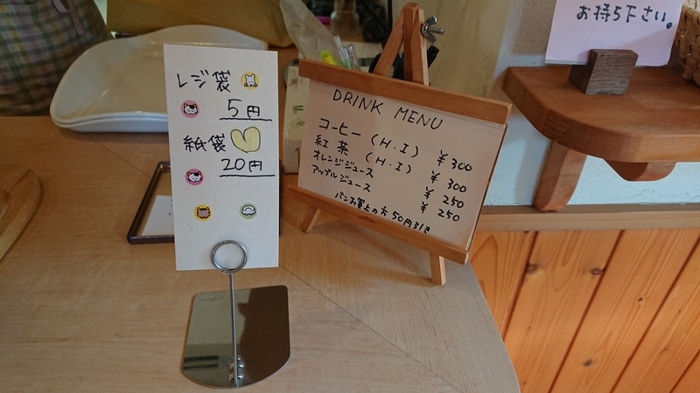 レジ袋
5円
紙袋
20円
DRINK MENU
コーヒー (H・I) ¥300
紅茶 (H・I) ¥300
オレンジジュース ¥250
アップルジュース ¥250
パンお買上の方50円引き
お待ち下さい。